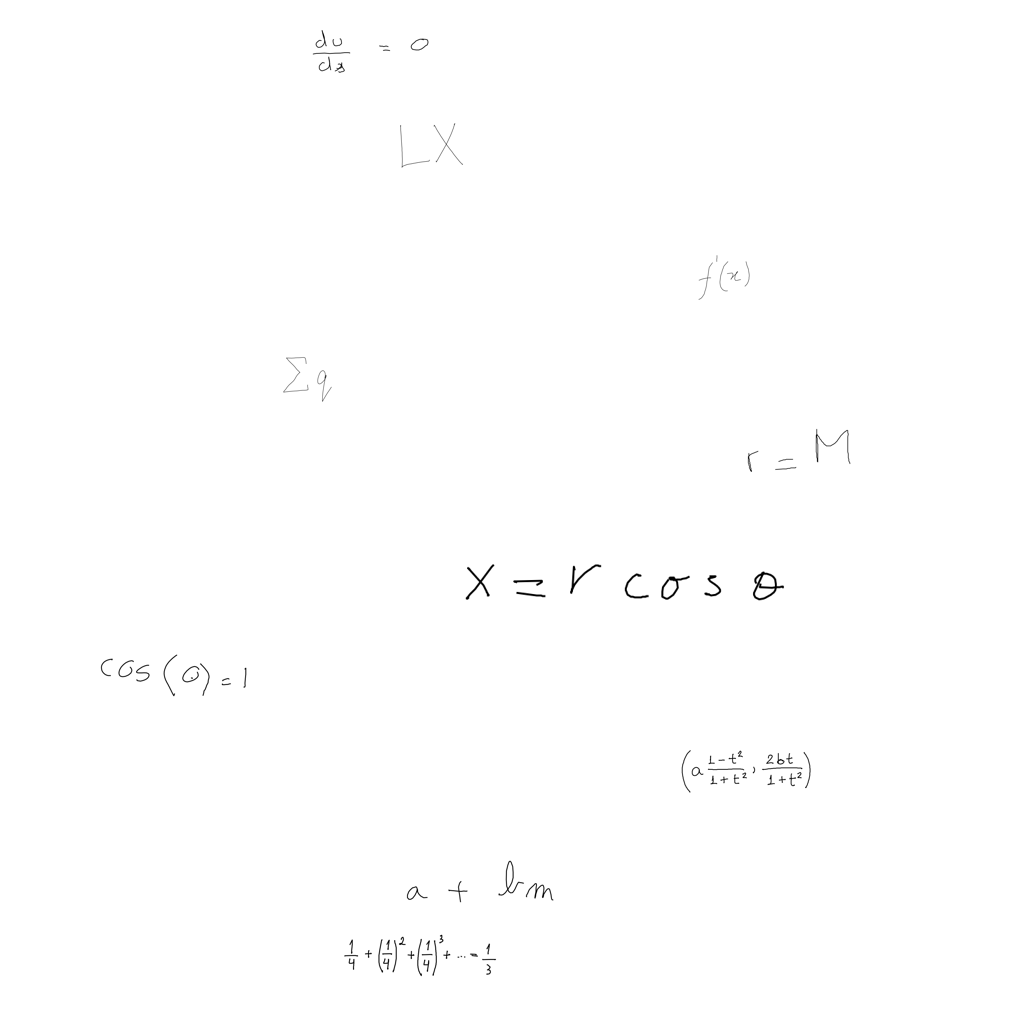 \frac{du}{ds} = 0
LX
f'(x)
\sum q
r = M
x = r cos θ
cos(0) = 1
\left(a\frac{1-t^2}{1+t^2}, \frac{2bt}{1+t^2}\right)
a + bm
\frac{1}{4} + \left(\frac{1}{4}\right)^2 + \left(\frac{1}{4}\right)^3 + ... = \frac{1}{3}